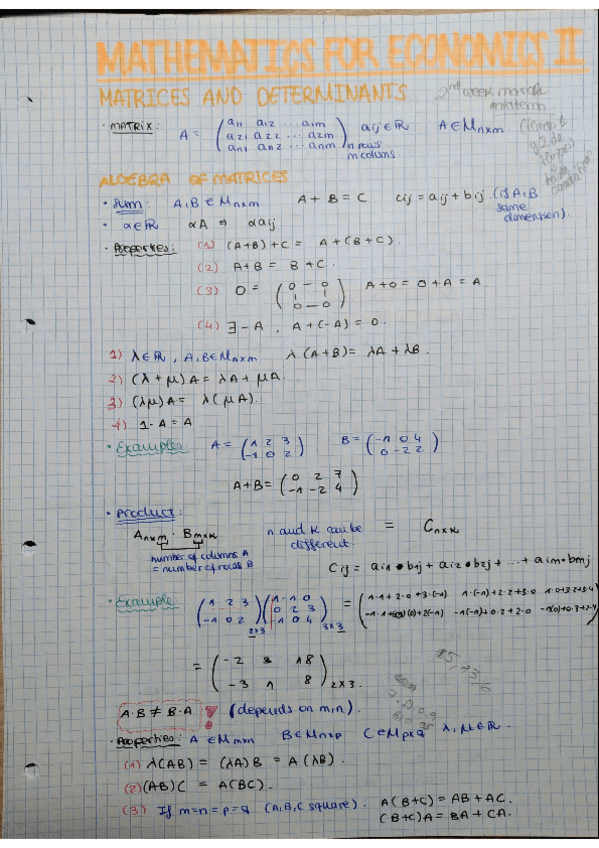 MATHEMATICS FOR ECONOMICS II
MATRICES AND DETERMINANTS
2nd week march
midterm
· MATRIX: A = ( a11 a12 ... a1m
a21 a22 ... a2m
an1 an2 ... anm ) n rows
m colums
aij ∈ ℝ A ∈ Mnxm
ALGEBRA OF MATRICES
· sum: A, B ∈ Mnxm A + B = C cij = aij + bij. (if A, B
same
dimension).
· α ∈ ℝ αA ⇒ αaij
· Properties: (1) (A+B)+C = A+(B+C)
(2) A+B = B+C.
(3) 0 = ( 0 — 0
| |
0 — 0 ) A+0 = 0+A = A.
(4) ∃ -A , A+(-A) = 0.
1) λ ∈ ℝ, A, B ∈ Mnxm λ(A+B) = λA + λB.
2) (λ + μ) A = λA + μA.
3) (λμ) A = λ(μA).
4) 1·A = A
· Examples: A = ( 1 2 3
-1 0 2 ) B = ( -1 0 4
0 -2 2 )
A+B = ( 0 2 7
-1 -2 4 )
· Product:
Anxm · Bmxk n and k can be different. = Cnxk
number of columns A
= number of rows B
Cij = ai1 • b1j + ai2 • b2j + ... + aim • bmj
· Example: ( 1 2 3
-1 0 2 ) 2x3 ( 1 -1 0
0 2 3
-1 0 4 ) 3x3 = ( 1·1+2·0+3·(-1) 1·(-1)+2·2+3·0 1·0+2·3+3·4
-1·1+ (0)+2(-1) -1(-1)+0·2+2·0 -1(0)+0·3+2·4
= ( -2 3 18
-3 1 8 ) 2x3.
A·B ≠ B·A ! (depends on m, n).
· Properties: A ∈ Mmxn B ∈ Mnxp C ∈ Mpxq λ, μ ∈ ℝ.
(1) λ(AB) = (λA) B = A (λB).
(2) (AB)C = A(BC).
(3) If m=n=p=q (A, B, C square): A(B+C) = AB + AC.
(B+C)A = BA + CA.